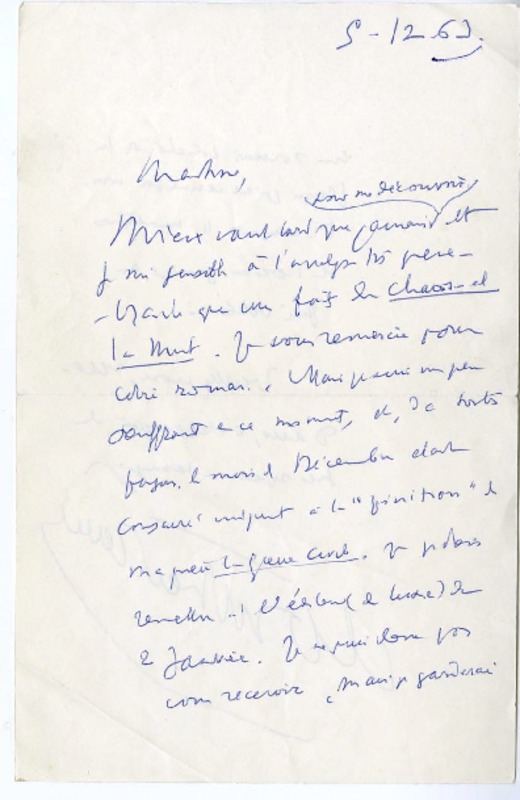 5-12-63.
Madame,
pour me découvrir
Mieux vaut tard que jamais et
je suis sensible à l'analyse très péné-
-trante que vous faites du Chaos et
la Nuit. Je vous remercie pour
votre roman. Mais je suis un peu
souffrant en ce moment, et, de toutes
façons, le mois de Décembre étant
consacré uniquement à la "finition" de
ma pièce la Guerre Civile. Je dois
remettre à l'éditeur le
2 Janvier. Je ne puis donc pas
vous recevoir, mais je garderai